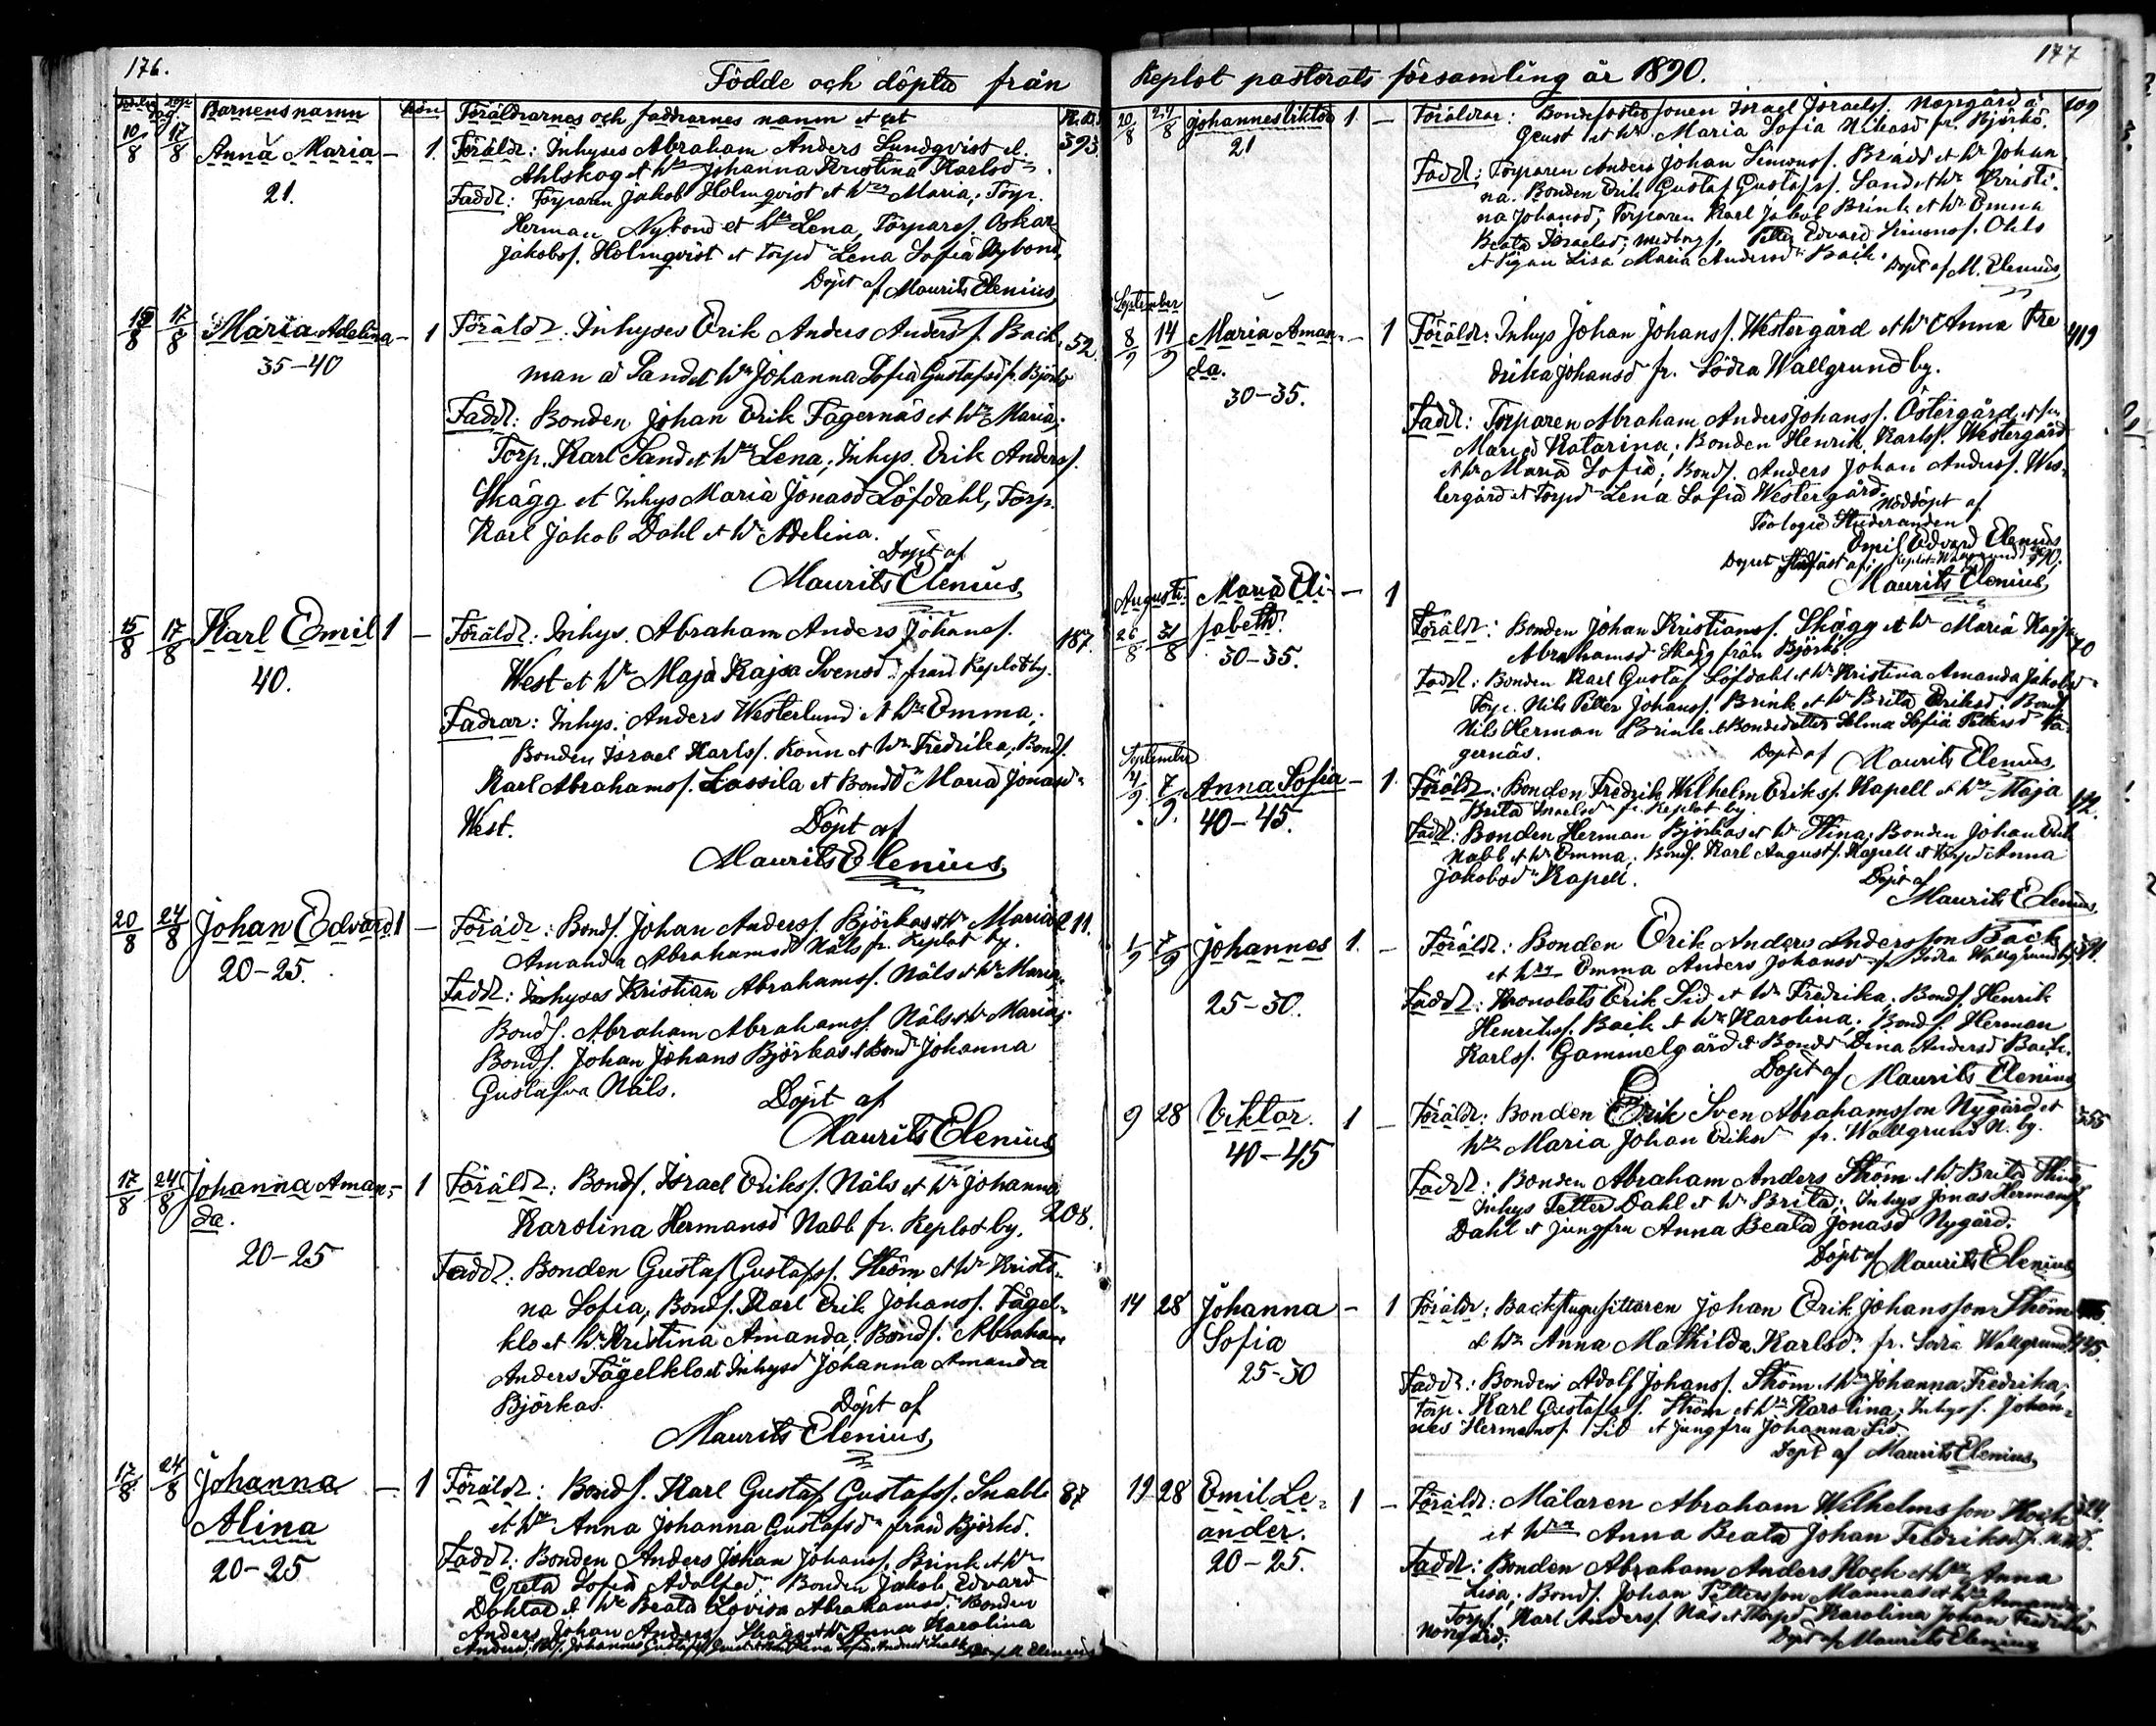 176.
Födde och döpta från
Födelse Döp. dag. Barnens namn Kön Föräldrarnes och faddrarnes namn et cet
10/8 17/8 Anna Maria — 1. Föräldr: Inhyses Abraham Anders Sundqvist el. 393.
21. Ahlskog et Hn Johanna Kristina Karlsdr
Faddr: Torparen Jakob Holmqvist et Hru Maria; Torp.
Herman Nybond et Hru Lena, Torpares. Oskar
Jakobss. Holmqvist et Torpdr Lena Sofia Nybond,
Döpt af Maurits Elenius
15/8 17/8 Maria Adelina — 1 Föräldr: Inhyses Erik Anders Anderss. Back- 52.
35–40 man å Sand et Hn Johanna Sofia Gustafsd fr. Björkö
Faddr: Bonden Johan Erik Fagernäs et Hru Maria;
Torp. Karl Sand et Hru Lena; Inhys. Erik Anderss.
Skägg et Inhys Maria Jonasd Löfdahl, Torp.
Karl Jakob Dahl et Hn Adelina.
Döpt af
Maurits Elenius
15/8 17/8 Karl Emil 1 — Föräldr: Inhys. Abraham Anders Johanss. 187.
40. West et Hn Maja Kajsa Svensdr från Replot by.
Fadrar: Inhys. Anders Westerlund et Hn Emma;
Bonden Israel Karlss. Könn et Hn Fredrika; Bonds.
Karl Abrahamss. Lassila et Bonddr Maria Jonasdr
West. Döpt af
Maurits Elenius
20/8 24/8 Johan Edvard 1 — Föräldr: Bonds. Johan Anderss. Björkas et Hn Maria 211.
20–25. Amanda Abrahamsd Näls fr. Replot by.
Faddr: Inhyses Kristian Abrahamss. Näls et Hn Maria;
Bonds. Abraham Abrahamss. Näls et Hn Maria;
Bonds. Johan Johans Björkas et Bonddr Johanna
Gustafva Näls. Döpt af
Maurits Elenius
17/8 24/8 Johanna Aman- — 1 Föräldr: Bonds. Israel Erikss. Näls et Hn Johanna
da. Karolina Hermansd Nabb fr. Replot by. 208.
20–25 Faddr: Bonden Gustaf Gustafss. Ström et Hn Kristi-
na Sofia; Bonds. Karl Erik Johanss. Fågel-
klo et Hn Kristina Amanda; Bonds. Abraham
Anders Fågelklo et Inhysd Johanna Amanda
Björkas. Döpt af
Maurits Elenius
17/8 24/8 Johanna — 1 Föräldr: Bonds. Karl Gustaf Gustafss. Snabb 87
Alina et Hn Anna Johanna Gustafsdr från Björkö.
20–25 Faddr: Bonden Anders Johan Johanss. Brink et Hn
Greta Sofia Adolfsd; Bonden Jakob Edvard
Doktar et Hn Beata Lovisa Abrahamsd. Bonden
Anders Johan Anderss. Skägg et Hn Anna Karolina
177
Replot pastorats församling år 1890.
20/8 24/8 Johannes Viktor 1 — Föräldrar: Bondefosters sonen Israel Israelss. Norrgård å 109
21 Geust et Hn Maria Sofia Nikasd fr. Björkö.
Faddr: Torparen Anders Johan Simonss. Brädd et Hn Johan-
na. Bonden Erik Gustaf Gustafss. Sand et Hn Kristi-
na Johansd; Torparen Karl Jakob Brink et Hn Emma
Beata Israelsd; Petter Edvard Simonss. Ohls
et Pigan Lisa Maria Andersdr Back. Döpt af M. Elenius
September
8/9 14/9 Maria Aman- — 1 Föräldr: Inhys Johan Johanss. Westergård et Hn Anna Fre 419
da. drika Johansd fr. Södra Wallgrund by.
30–35. Faddr: Torparen Abraham Anders Johanss. Östergård et
Maria Katarina; Bonden Henrik Karlss. Westergård
et Hn Maria Sofia; Bonds. Anders Johan Anderss. Wes-
tergård et Torpdr Lena Sofia Westergård.
Nöddöpt af
Teologie Studeranden
Emil Edvard Elenius
Maurits Elenius
Augusti. Maria Eli- — 1
26/8 31/8 sabeth. Föräldr: Bonden Johan Kristianss. Skägg et Hn Maria Kajsa 70
30–35. Abrahamsd Skägg från Björkö.
Faddr: Bonden Karl Gustaf Löfdahl et Hn Kristina Amanda Jakobsd
Torp. Nils Petter Johanss. Brink et Hn Brita Eriksd. Bonds
Nils Herman Brink et Bondedotter Selma Sofia Pettersd Fa-
gernäs. Döpt af Maurits Elenius
September
4/9 7/9 Anna Sofia — 1. Föräldr: Bonden Fredrik Wilhelm Erikss. Kapell et Hn Maja
40–45. Brita Israelsd fr. Replot by.
Faddr: Bonden Herman Björkas et Hn Stina; Bonden Johan Erik
Nabb et Hn Emma; Bonds. Karl Augusts. Kapell et Torpd Anna
Jakobsdr Kapell. Döpt af
Maurits Elenius
1/9 7/9 Johannes 1. — Föräldr: Bonden Erik Anders Andersson Back
25–30. et Hru Emma Anders Johansd fr Södra Wallgrund by.
Faddr: Kronolots Erik Sid et Hn Fredrika; Bonds. Henrik
Henrikss. Back et Hn Karolina; Bonds. Herman
Karlss. Gammelgård et Bonddr Dina Andersd Back.
Döpt af Maurits Elenius
9 28 Viktor. 1 — Föräldr: Bonden Erik Sven Abrahamsson Nygård et 355
40–45 Hn Maria Johan Eriksd fr. Wallgrund N. by.
Faddr: Bonden Abraham Anders Ström et Hn Brita Stina
Inhys Petter Dahl et Hn Brita; Inhys Jonas Hermanss.
Dahl et jungfru Anna Beata Jonasd Nygård.
Döpt af Maurits Elenius
14 28 Johanna — 1 Föräldr: Backstugusittaren Johan Erik Johansson Ström
Sofia & Hn Anna Mathilda Karlsdr. fr. Södra Wallgrund 445.
25–30 Faddr: Bonden Adolf Johanss. Ström et Hn Johanna Fredrika;
Torp. Karl Gustafss. Ström et Hn Karolina; Inhyss. Johan-
nes Hermanss. Sid et jungfru Johanna Sid.
Döpt af Maurits Elenius
19 28 Emil Le- 1 — Föräldr: Målaren Abraham Wilhelmsson Hock 324.
ander. et Hru Anna Beata Johan Fredriksd
20–25. Faddr: Bonden Abraham Anders Hock et Hn Anna
Lisa; Bonds. Johan Pettersson Mannas et Hn Amanda;
Torps. Karl Anderss. Näs et Torpd Karolina Johan Fredriksd
Norrgård. Döpt af Maurits Elenius